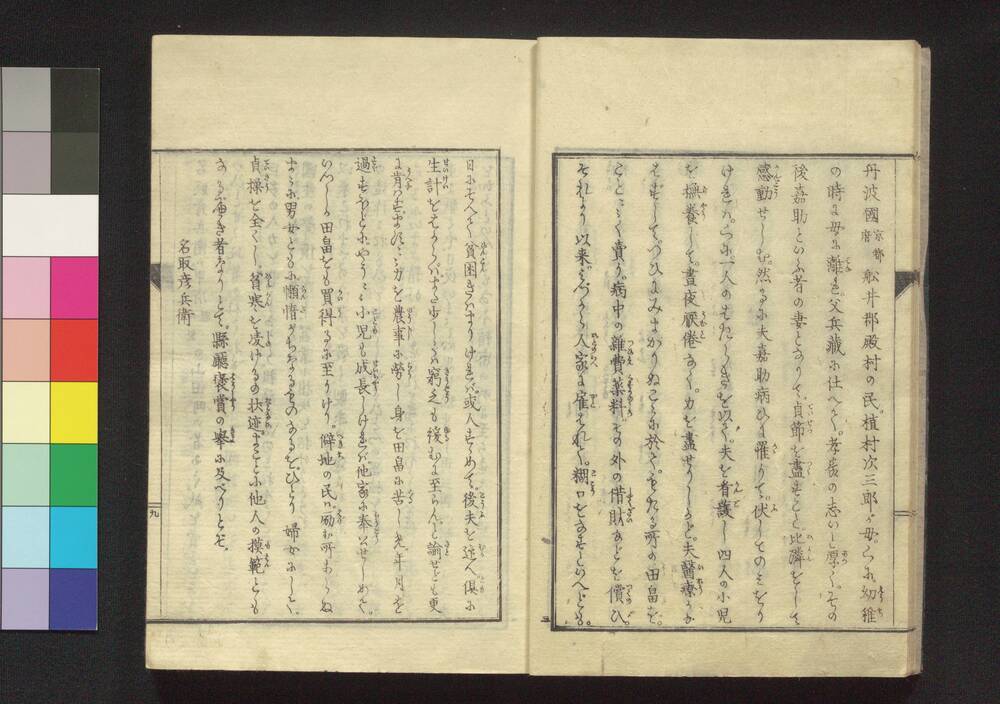 丹波國京都府舩井郡殿村の民植村次三郎が母くに幼稚
の時より母に離れ父兵藏に仕へて孝養の志いと厚くその
後嘉助といふ者の妻となりて貞節を盡すこと比隣をして
感動せしむ然るに夫嘉助病ひに罹りて伏してのミをり
けれバくに一人のはたらきを以て夫を看護し四人の小児
を撫養して晝夜厭倦なく力を盡せりしかど夫醫療か
なはずしてつひにみまかりぬこゝに於てもたる所の田畠を
ことごとく賣り病中の雜費藥料その外の借財などを償ひ
それより以来しバらく人家に雇はれて糊口をなすといへども
日にそへて貧困きはまりけれバ或人すゝめて後夫を迎へ倶に
生計をはからバすこしく窮乏も緩むに至らんと諭せども更
に肯ハずますます力を農事に勞し身を田畠に苦しめ年月を
過すほどにやうやう小児も成長しけれバ他家に奉公せしめて
いさゝか田畠をも買得るに至りけり僻地の民ハ勵む所あらぬ
まゝに男女ともに懶惰がちなるものなるをひとり婦女にして
貞操を全くし貧寒を凌けるの状迹まことに他人の摸範とも
なるべき者なりとて縣廳褒賞の擧に及べりとぞ
名取彦兵衛
九